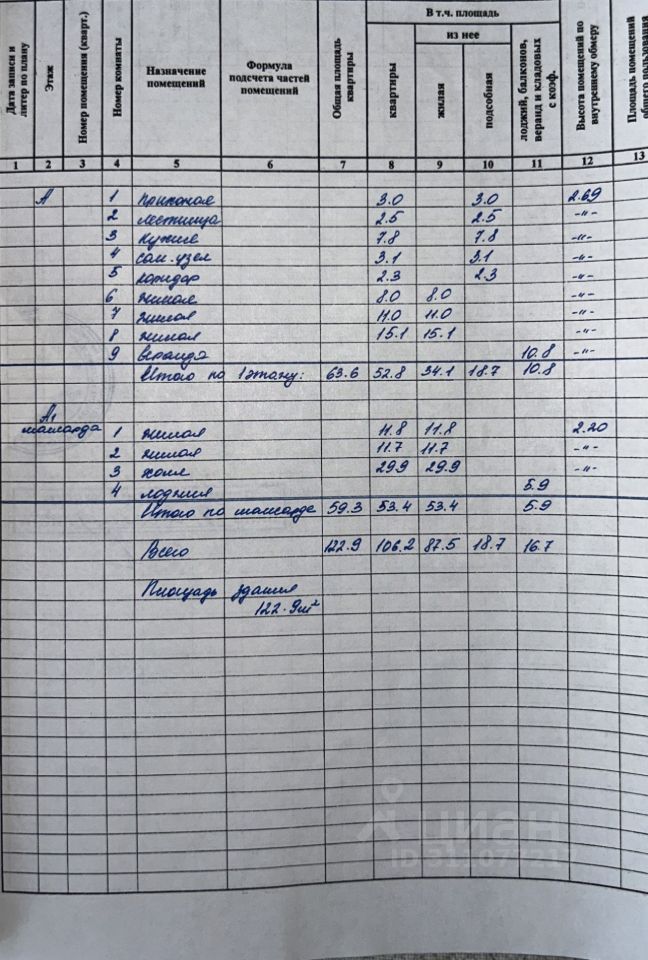 Дата записи и литер по плану | Этаж | Номер помещения (кварт.) | Номер комнаты | Назначение помещений | Формула подсчета частей помещений | Общая площадь квартиры | В т.ч. площадь | Высота помещений по внутреннему обмеру | Площадь помещений общего пользования
квартиры | из нее | лоджий, балконов, веранд и кладовых с коэф.
жилая | подсобная
1 2 3 4 5 6 7 8 9 10 11 12 13
А 1 прихожая 3.0 3.0 2.69
2 лестница 2.5 2.5 -"-
3 кухня 7.8 7.8 -"-
4 сан. узел 3.1 3.1 -"-
5 коридор 2.3 2.3 -"-
6 жилая 8.0 8.0 -"-
7 жилая 11.0 11.0 -"-
8 жилая 15.1 15.1 -"-
9 веранда 10.8 -"-
Итого по 1 этажу: 63.6 52.8 34.1 18.7 10.8
А1
мансарда 1 жилая 11.8 11.8 2.20
2 жилая 11.7 11.7 -"-
3 холл 29.9 29.9 -"-
4 лоджия 5.9
Итого по мансарде 59.3 53.4 53.4 5.9
Всего 122.9 106.2 87.5 18.7 16.7
Площадь здания
122.9м²
циан